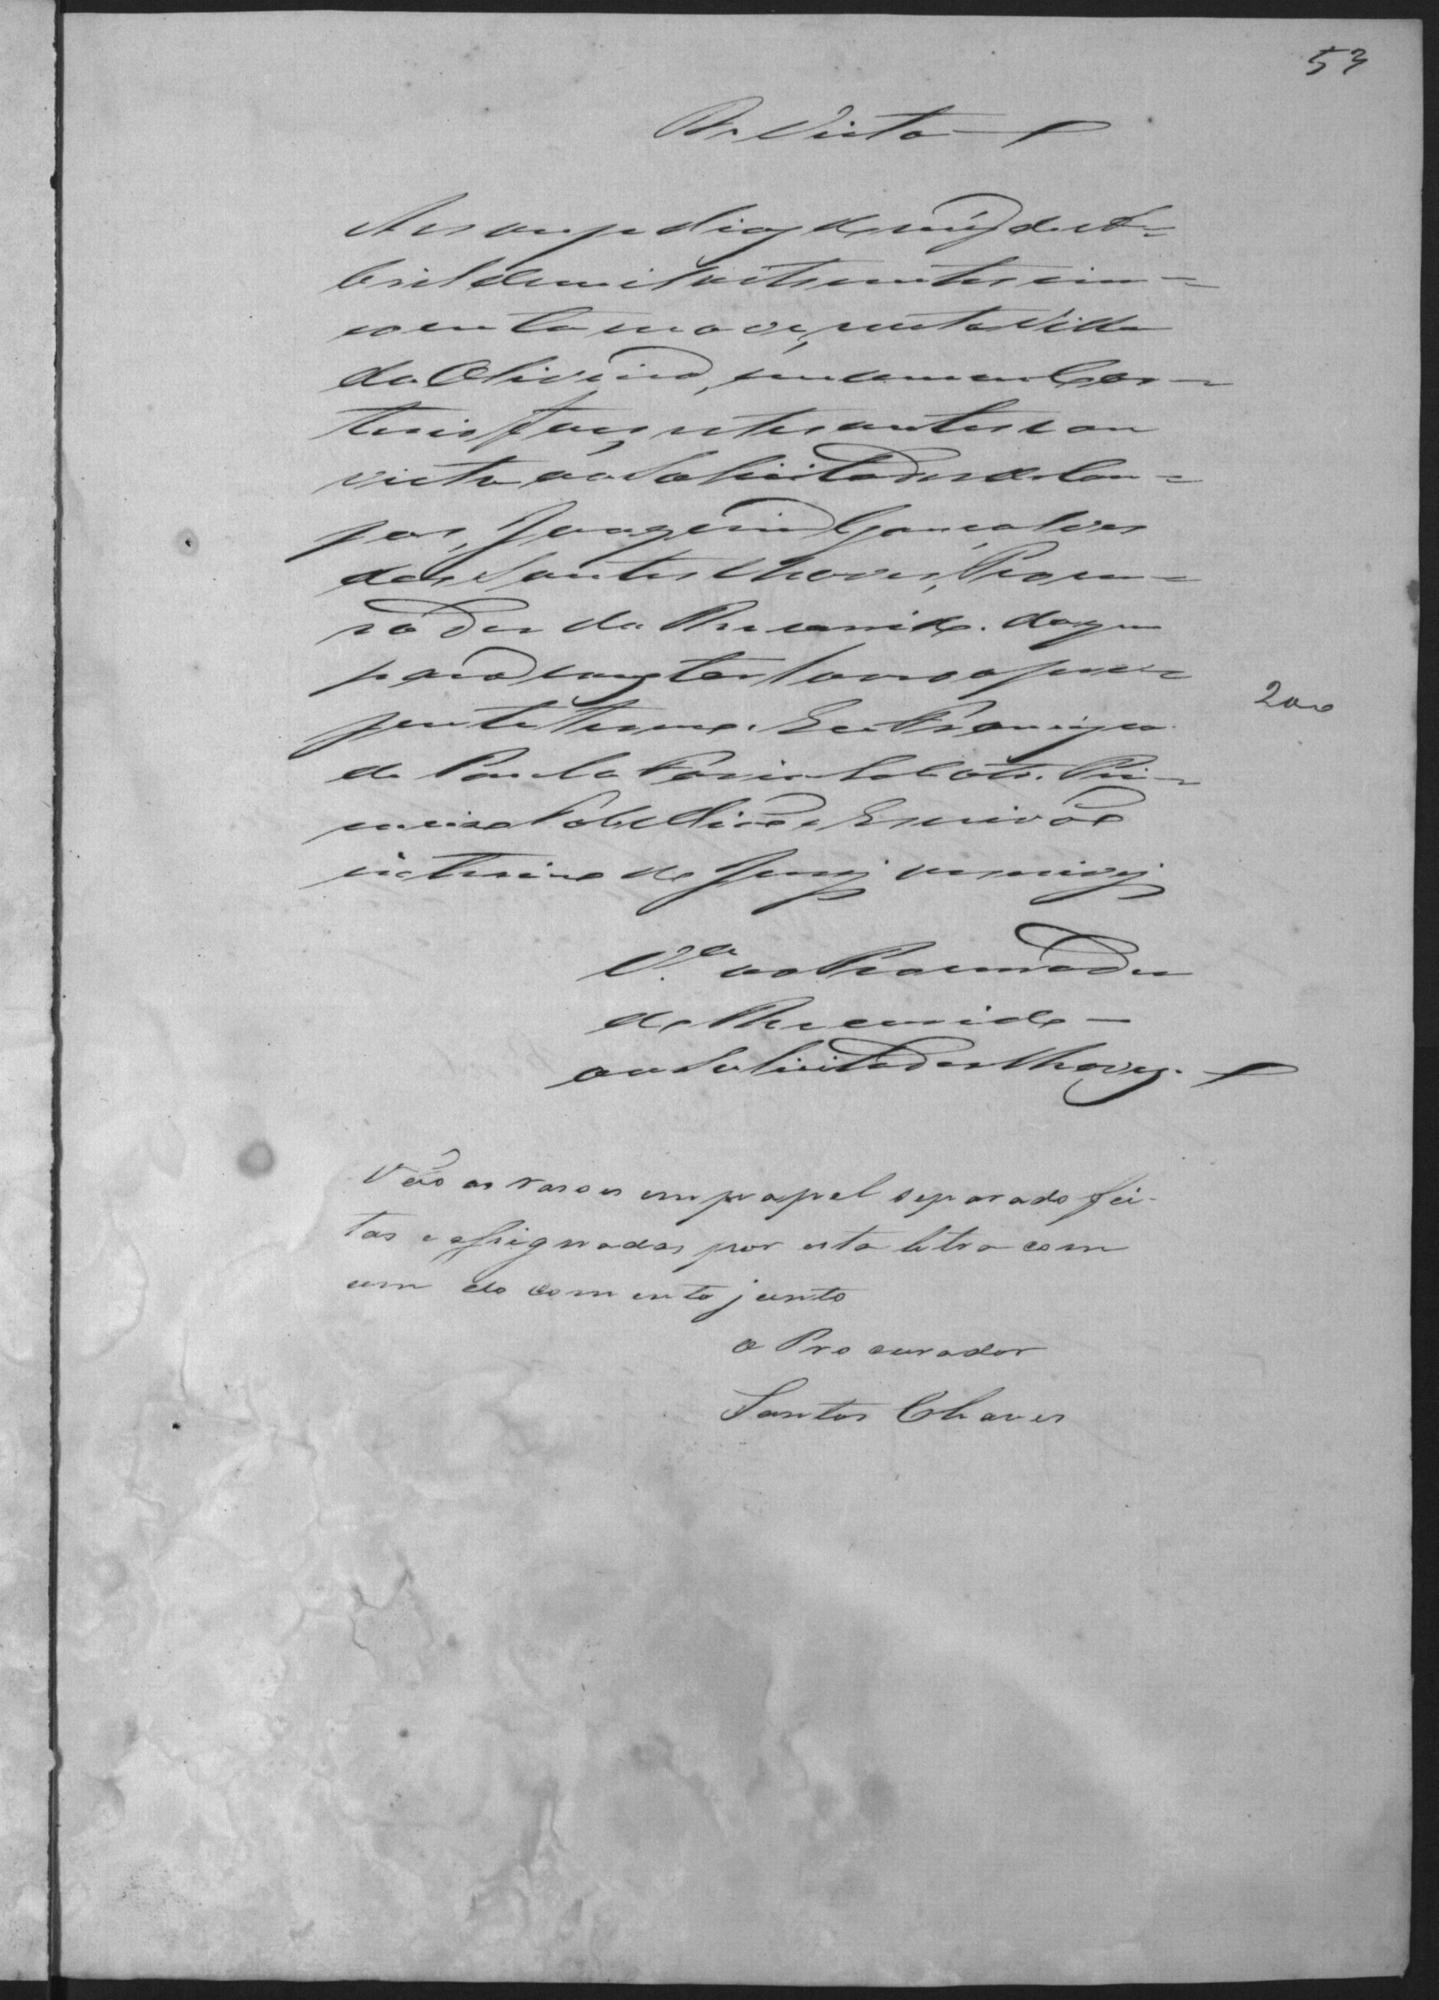 53
De Vista
Aos onze dias do mez de A-
bril de mil oitocentos cin-
coenta e nove, nesta Villa
da Oliveira, em meu Car-
torio faço estes autos com
vista ao Solicitador de Cau-
sas, Joaquim Gonçalves
dos Santos Chaves, Procu-
rador da Recorrida. do que
para constar lavro o pre-
sente termo. Eu Francisco
de Paula Faria Lobato. Pri-
meiro Tabellião e Escrivão
interino de Juiz
200
V.ta ao Procurador
da Recorrida
ao Solicitador Chaves.
Vão as rasoes em papel separado fei-
tas e assignadas por esta letra com
um documento junto
o Procurador
Santos Chaves